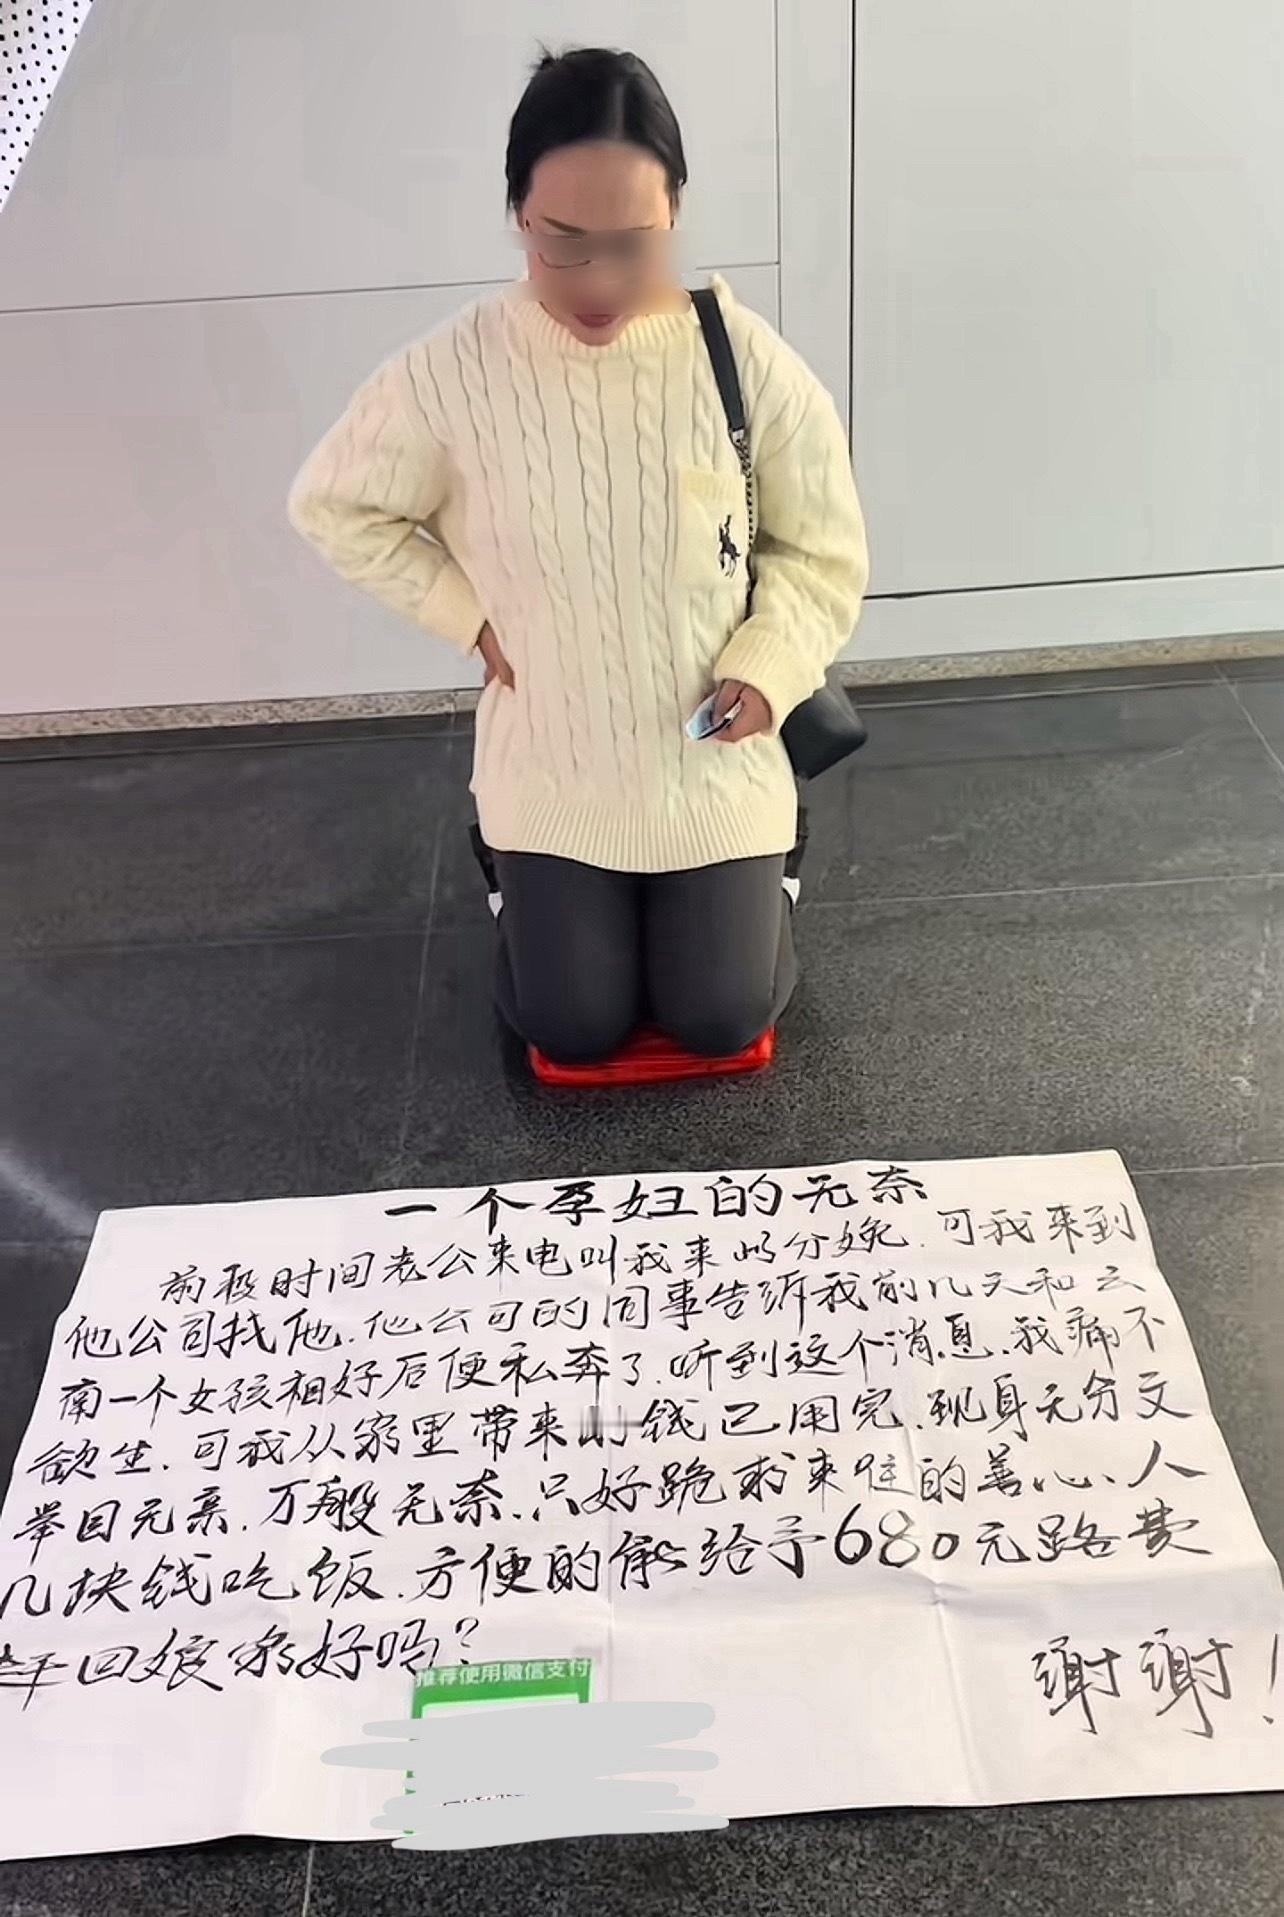 一个孕妇的无奈
前段时间老公来电叫我来此分娩.可我来到
他公司找他.他公司的同事告诉我前几天和云
南一个女孩相好后便私奔了.听到这个消息.我痛不
欲生.可我从家里带来的钱已用完.现身无分文
举目无亲.万般无奈.只好跪求来往的善心人
几块钱吃饭.方便的能给予680元路费
赶回娘家好吗?
谢谢!
推荐使用微信支付